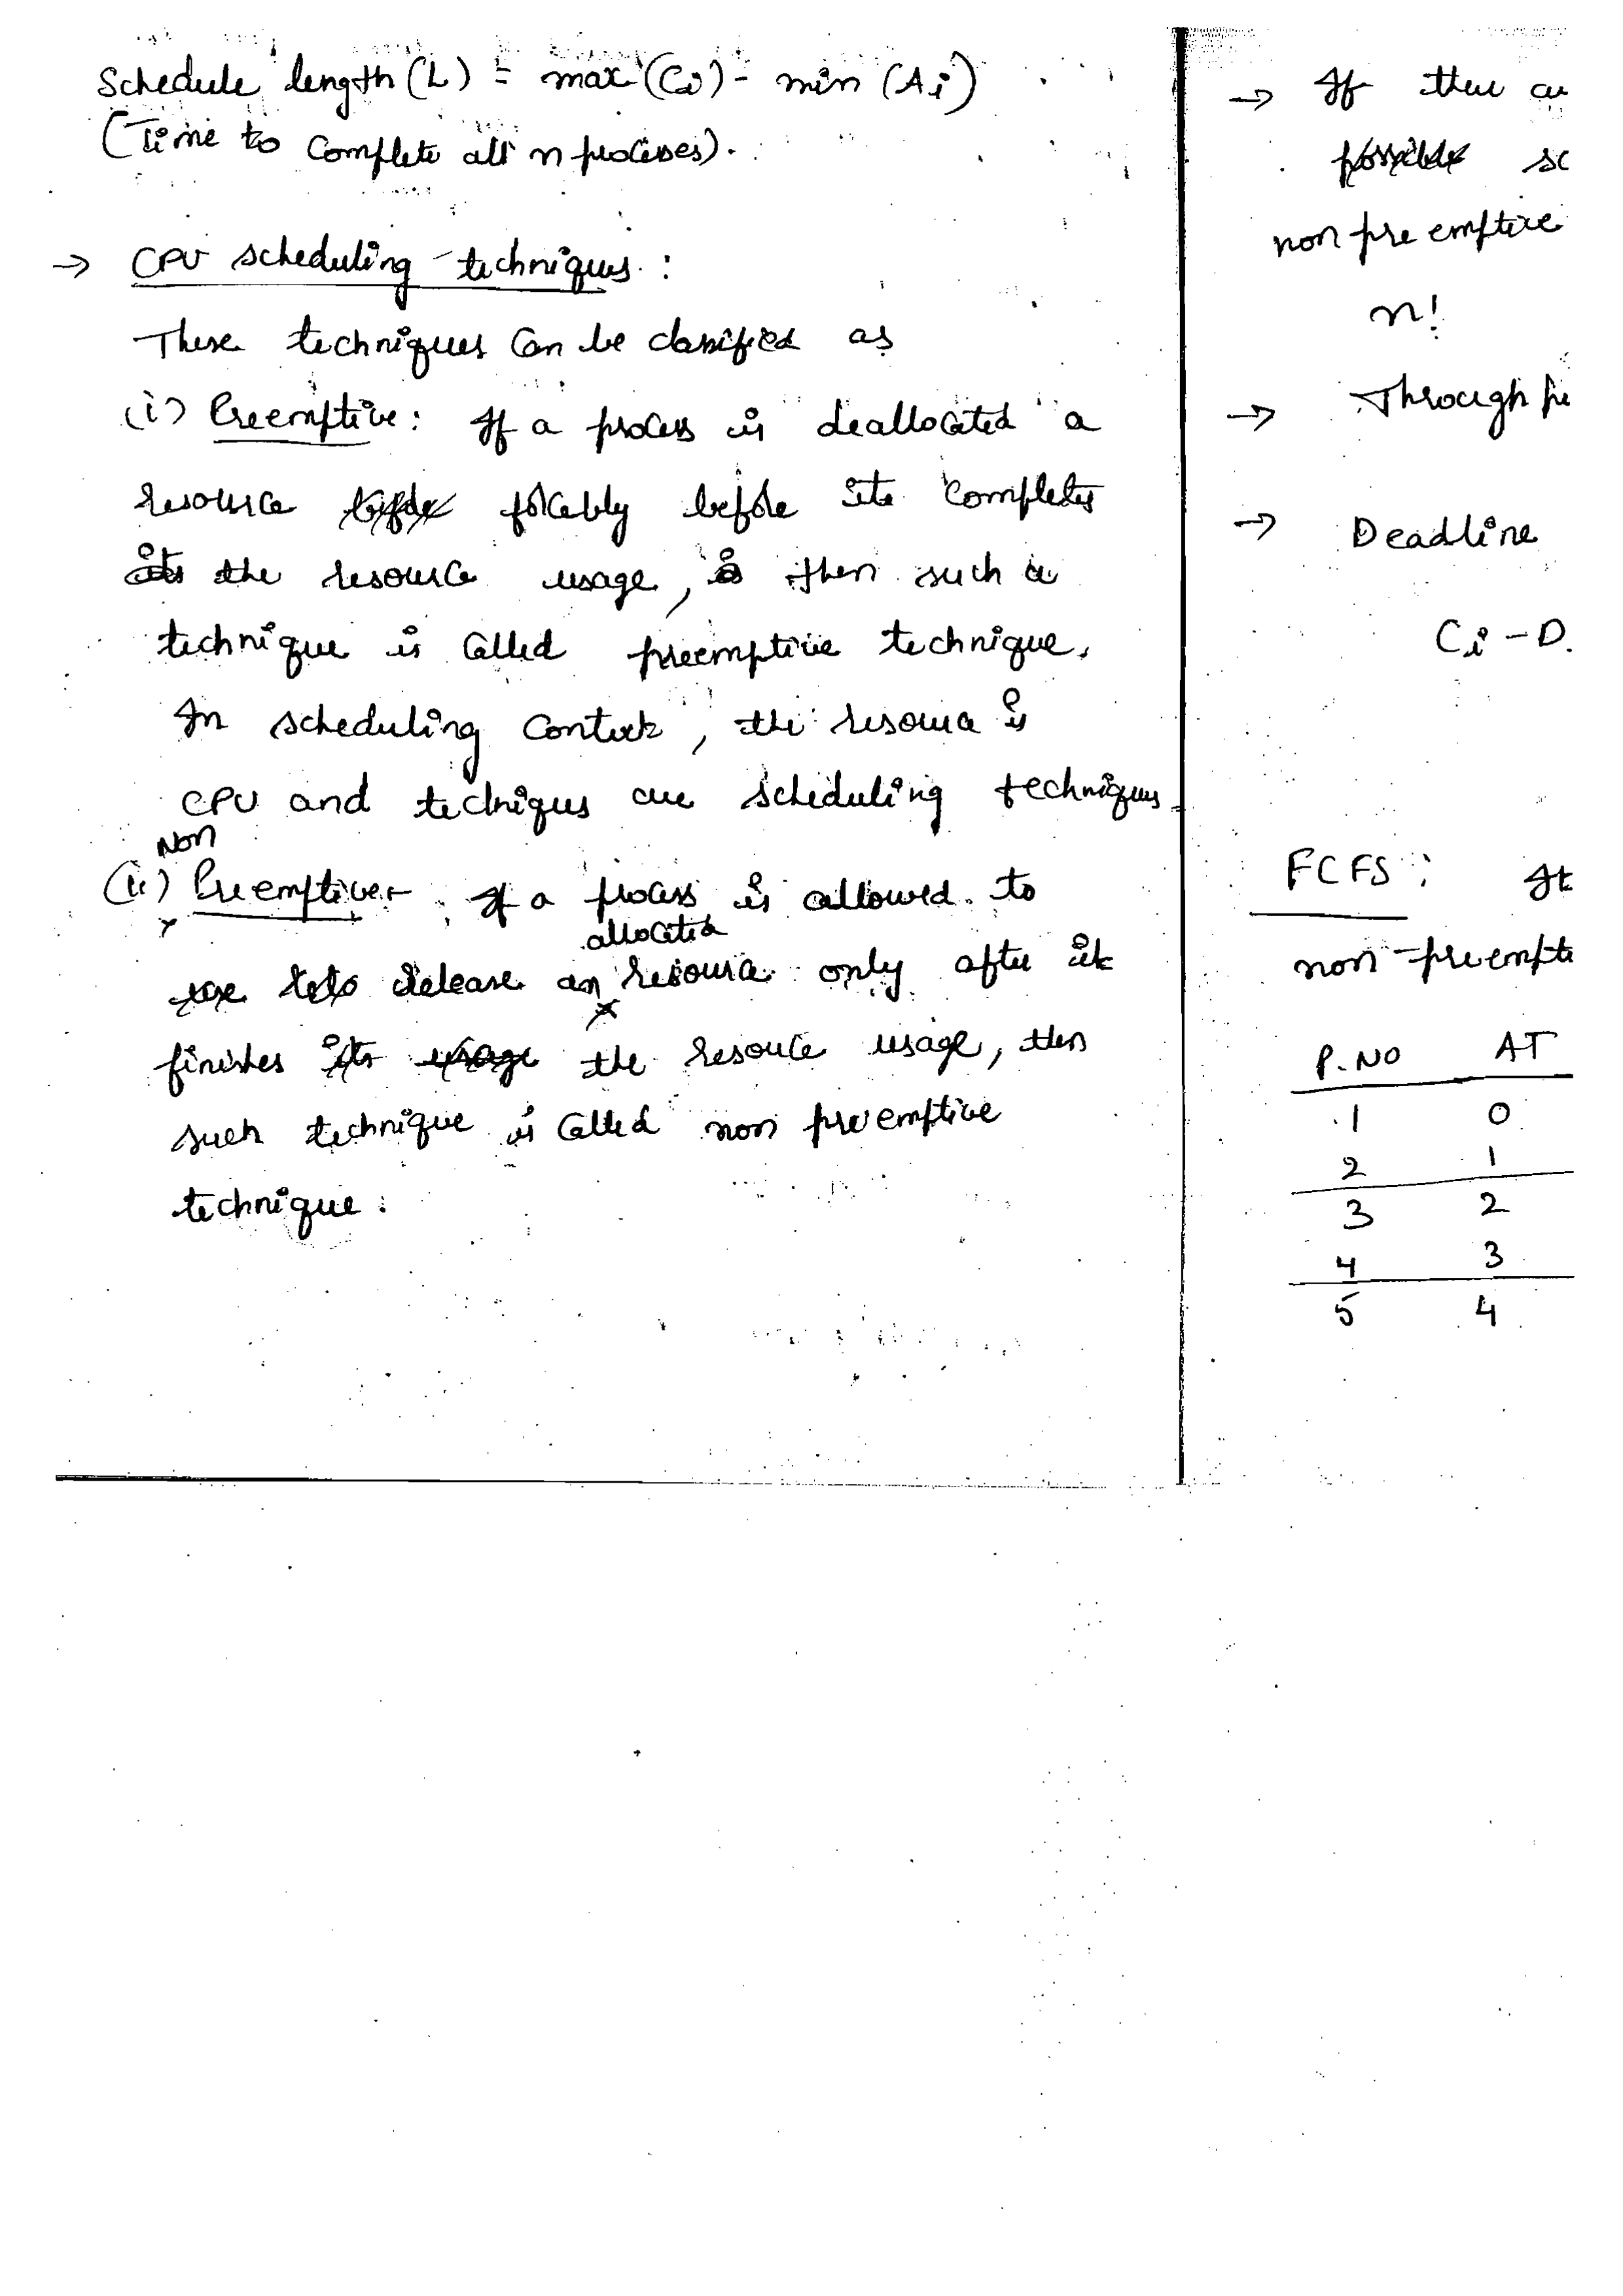 Schedule length (L) = max (Ci) - min (Ai)
(Time to complete all n processes).
→ CPU scheduling techniques :
These techniques can be classified as
(i) Preemptive: If a process is deallocated a
resource forcebly before its completes
the resource usage, then such a
technique is called preemptive technique.
In scheduling context, the resource is
CPU and techniques are scheduling techniques
(ii) Non Preemptive:- If a process is allowed to
release an allocated resource only after it
finishes the resource usage, then
such technique is called non preemptive
technique.
→ If there
non preemptive
n!
→ Through
→ Deadline
Ci - D
FCFS : It
non-preempt
P.NO AT
1 0
2 1
3 2
4 3
5 4